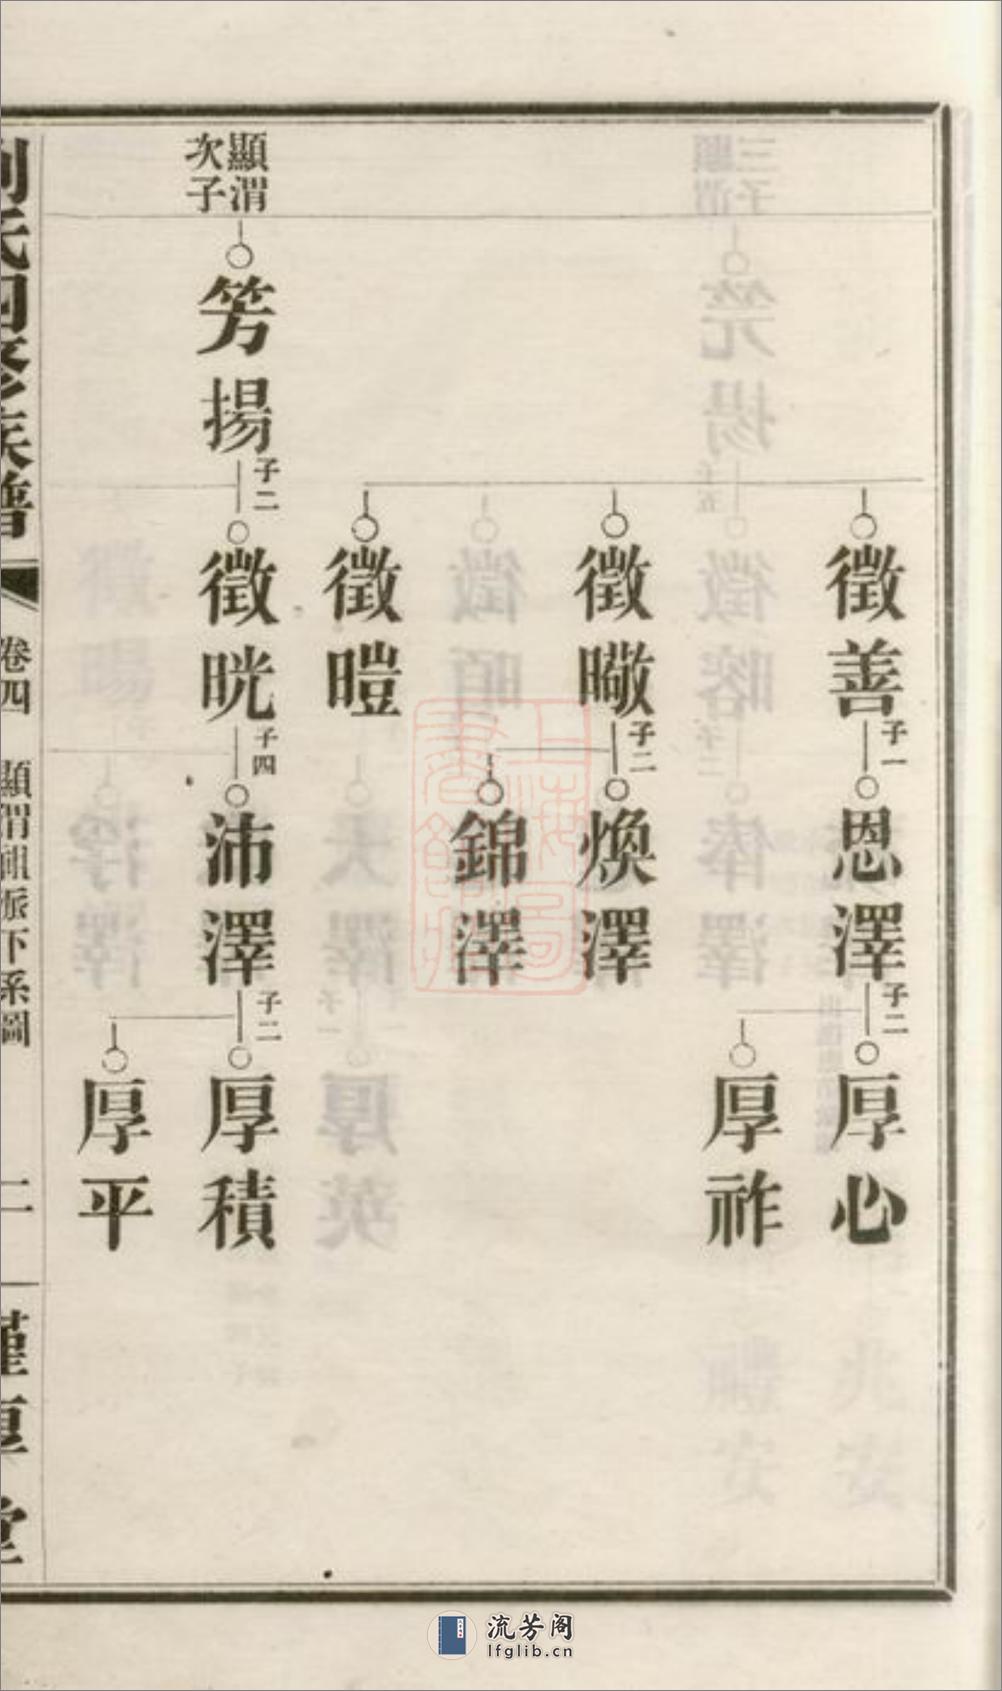 徵善
子一
恩澤
子二
厚心
厚祚
徵暾
子二
煥澤
錦澤
徵暟
顯渭
次子
芳揚
子二
徵晄
子四
沛澤
子二
厚積
厚平
氏四修族譜
卷四
顯渭祖派下系圖
二
堂
上海圖書館藏
流芳阁
lfglib.cn